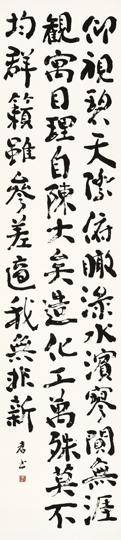 仰視碧天際俯瞰淥水濱寥闃無涯
觀寓目理自陳大矣造化工萬殊莫不
均群籟雖參差適我無非新